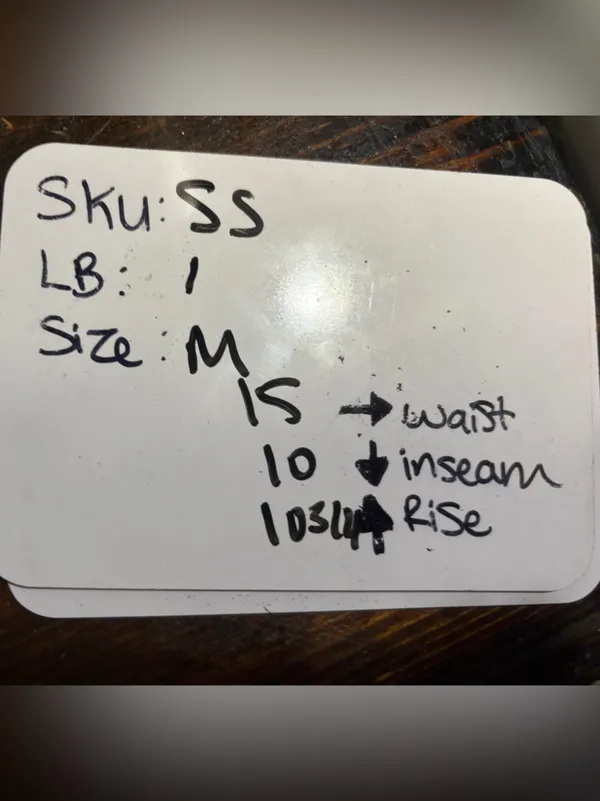 SKU: SS
LB: 1
Size: M
15 → waist
10 ↓ inseam
10 3/4 ↑ Rise